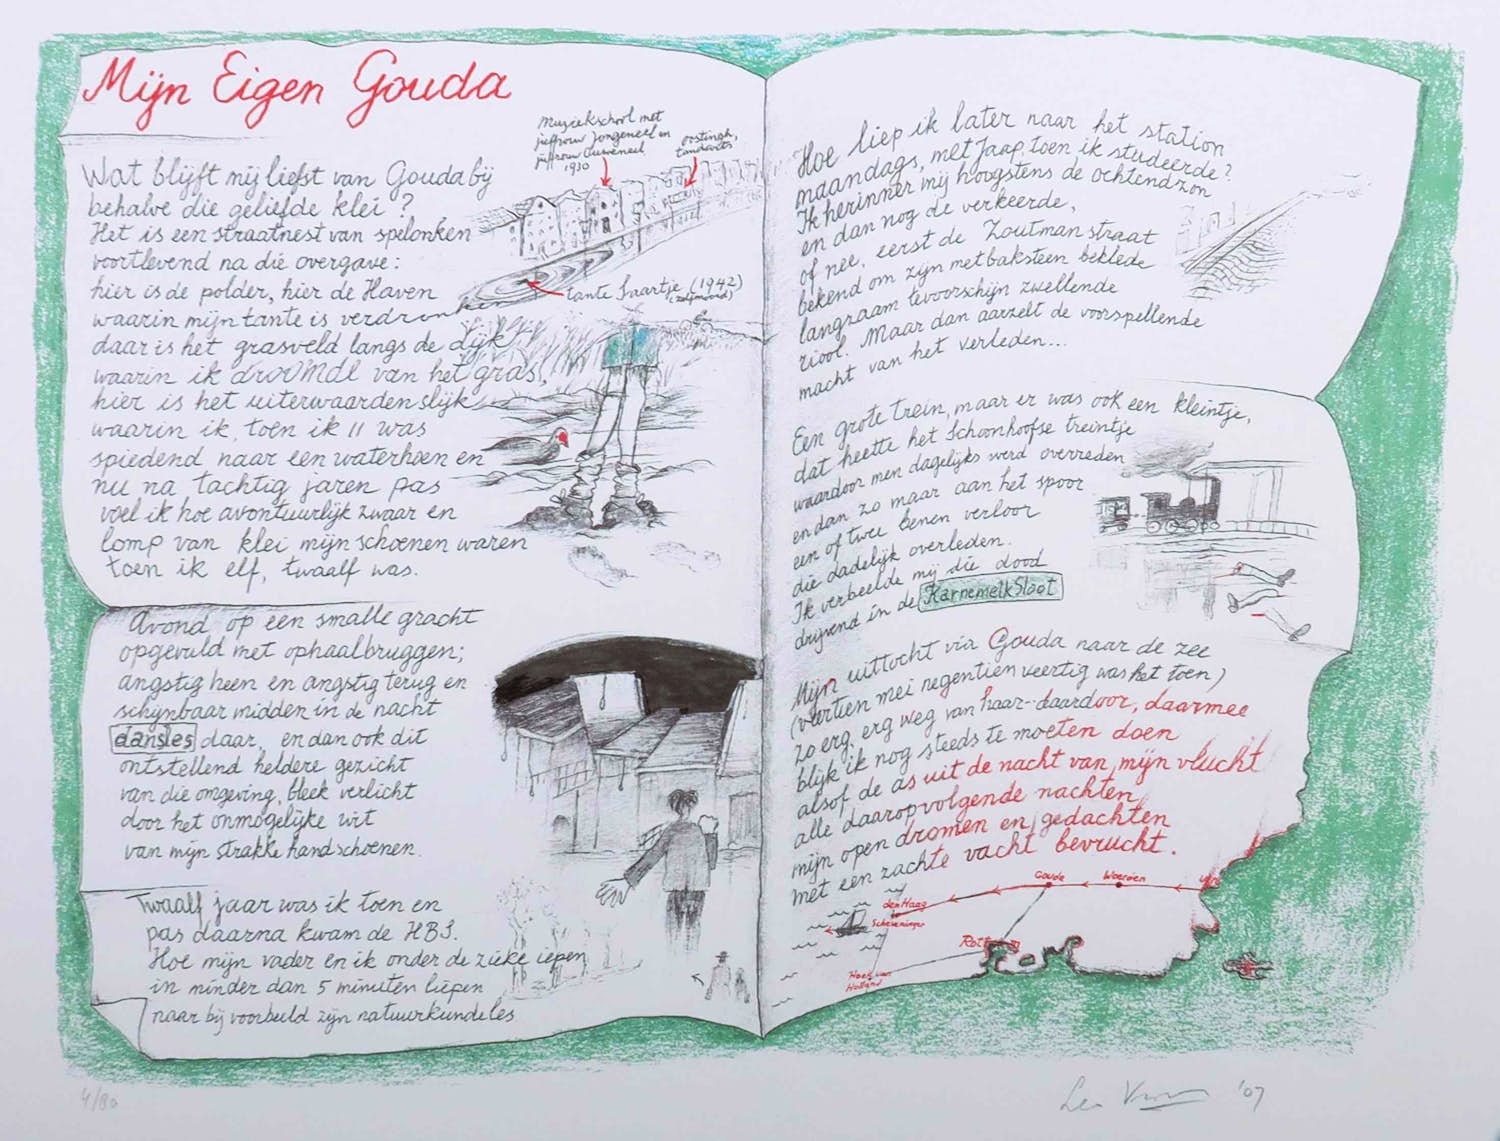 Mijn Eigen Gouda
muziekschool met
juffrouw Jongeneel en
juffrouw
1930
tandarts
Wat blijft mij liefst van Gouda bij
behalve die geliefde klei?
Het is een straatnest van spelonken
voortlevend na die overgave:
hier is de polder, hier de Haven
waarin mijn tante is verdronken
daar is het grasveld langs de dijk
waarin ik droomde van het gras,
hier is het uiterwaardenslijk
waarin ik, toen ik 11 was
spiedend naar een waterhoen en
nu na tachtig jaren pas
voel ik hoe avontuurlijk zwaar en
lomp van klei mijn schoenen waren
toen ik elf, twaalf was.
tante Saartje (1942)
(zelfmoord)
Avond op een smalle gracht
opgevuld met ophaalbruggen;
angstig heen en angstig terug en
schijnbaar midden in de nacht
dansles daar, en dan ook dit
ontstellend heldere gezicht
van die omgeving, bleek verlicht
door het onmogelijke wit
van mijn strakke handschoenen.
Twaalf jaar was ik toen en
pas daarna kwam de HBS.
Hoe mijn vader en ik onder de zieke iepen
in minder dan 5 minuten liepen
naar bij voorbeeld zijn natuurkundeles
Hoe liep ik later naar het station
maandags, met Jaap, toen ik studeerde?
Ik herinner mij hoogstens de ochtendzon
en dan nog de verkeerde,
of nee, eerst de Zoutmanstraat
bekend om zijn met baksteen beklede
langzaam tevoorschijn zwellende
riool. Maar dan aarzelt de voorspellende
macht van het verleden...
Een grote trein, maar er was ook een kleintje,
dat heette het Schoonhoofse treintje
waardoor men dagelijks werd overreden
en dan zo maar aan het spoor
een of twee benen verloor
die dadelijk overleden.
Ik verbeelde mij die dood
drijvend in de Karnemelksloot
Mijn uittocht via Gouda naar de zee
(veertien mei negentien veertig was het toen)
zo erg, erg weg van haar - daardoor, daarmee
blijk ik nog steeds te moeten doen
alsof de as uit de nacht van mijn vlucht
alle daarop volgende nachten
mijn open dromen en gedachten
met een zachte vacht bevrucht.
Gouda
Woerden
den Haag
Scheveningen
Hoek van
Holland
4/80
Leo Vroman '07